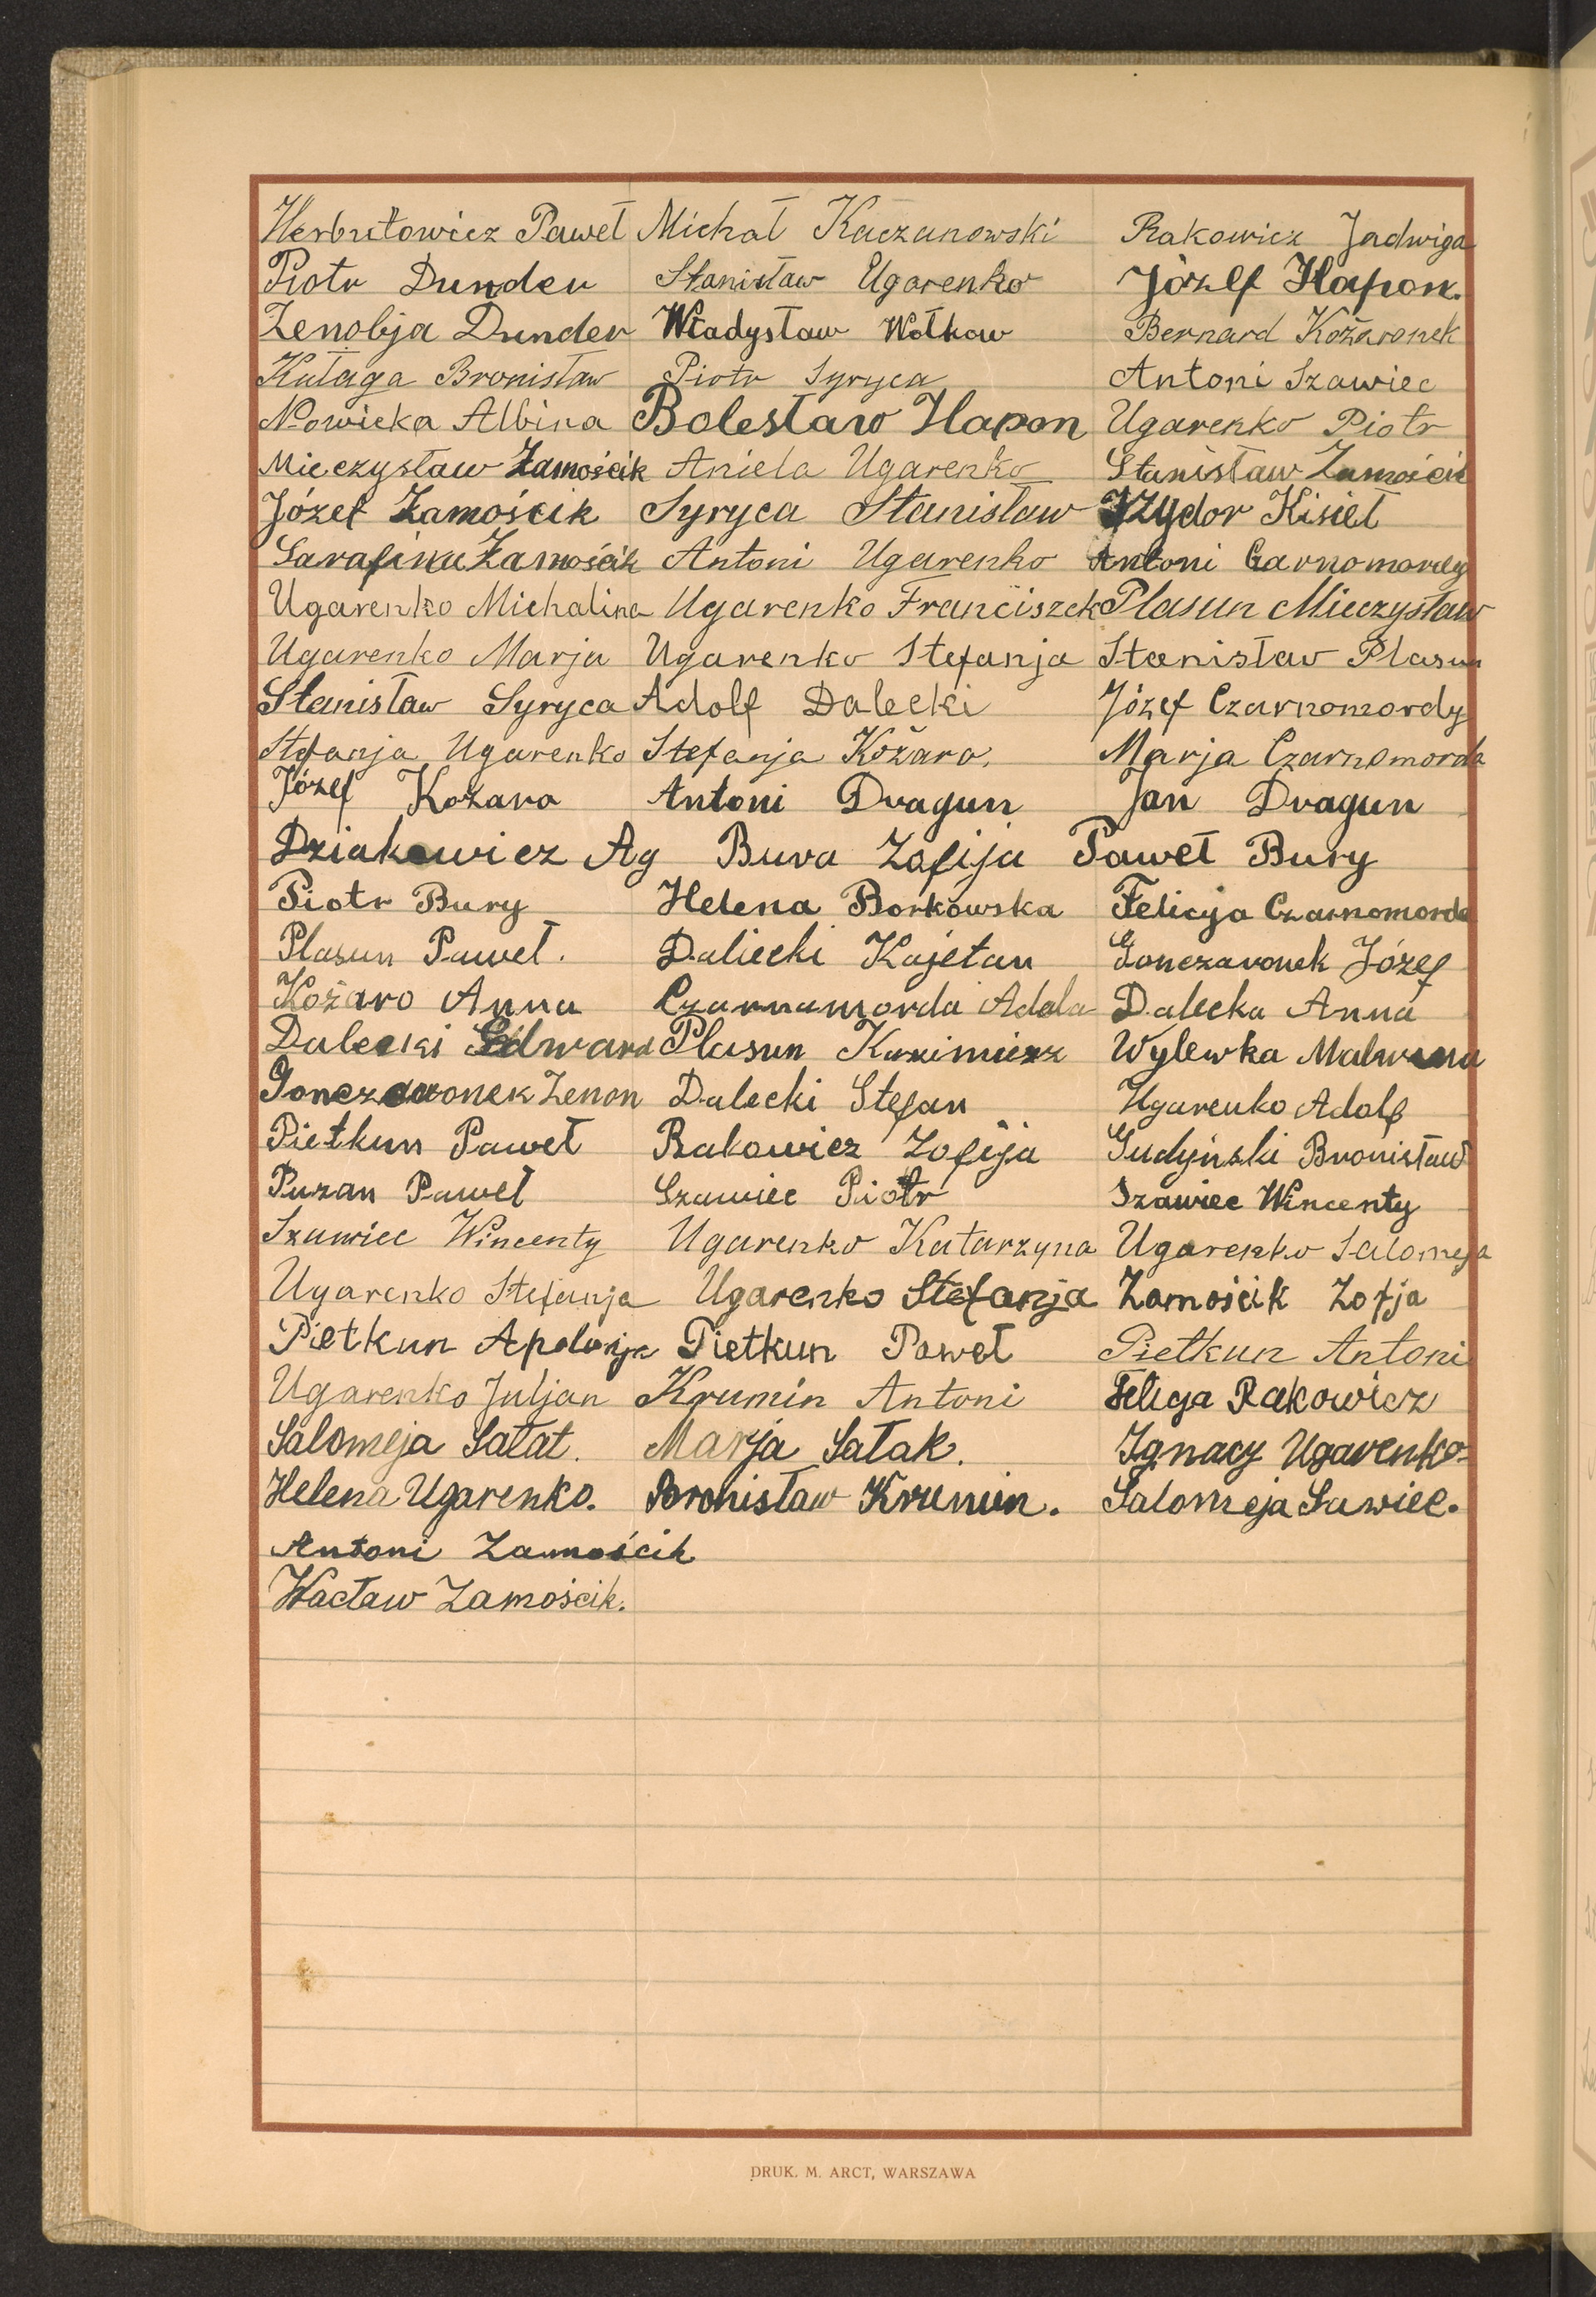 Herbutowicz Paweł Michał Kaczanowski Rakowicz Jadwiga
Piotr Dunder Stanisław Ugarenko Józef Hapon.
Zenobja Dunder Władysław Wołkow Bernard Kożaronek
Kułaga Bronisław Piotr Syryca Antoni Szawiec
Nowicka Albina Bolesław Hapon Ugarenko Piotr
Mieczysław Zamościk Aniela Ugarenko Stanisław Zamościk
Józef Zamościk Syryca Stanisław Izydor Kisiel
Sarafina Zamościk Antoni Ugarenko Antoni Czarnomordy
Ugarenko Michalina Ugarenko Franciszek Plasun Mieczysław
Ugarenko Marja Ugarenko Stefanja Stanisław Plasun
Stanisław Syryca Adolf Dalecki Józef Czarnomordy
Stefanja Ugarenko Stefanja Kożaro. Marja Czarnomorda
Józef Kożaro Antoni Dragun Jan Dragun
Dziakowicz Ag Bura Zofija Paweł Bury
Piotr Bury Helena Borkowska Felicja Czarnomorda
Plasun Paweł. Daliecki Kajetan Gonczaronek Józef
Kożaro Anna Czarnamorda Adela Dalecka Anna
Dalecki Edward Plasun Kazimierz Wylewka Malwina
Gonczaronek Zenon Dalecki Stefan Ugarenko Adolf
Pietkun Paweł Rakowicz Zofija Gudyński Bronisław
Puzan Paweł Szawiec Piotr Szawiec Wincenty
Szawiec Wincenty Ugarenko Katarzyna Ugarenko Salomeja
Ugarenko Stefanja Ugarenko Stefanja Zamościk Zofja
Pietkun Apolonja Pietkun Paweł Pietkun Antoni
Ugarenko Juljan Krumin Antoni Felicja Rakowicz
Salomeja Sałat. Marja Sałak. Ignacy Ugarenko
Helena Ugarenko. Bronisław Krumin. Salomeja Sawiec.
Antoni Zamościk
Wacław Zamościk.
DRUK. M. ARCT, WARSZAWA